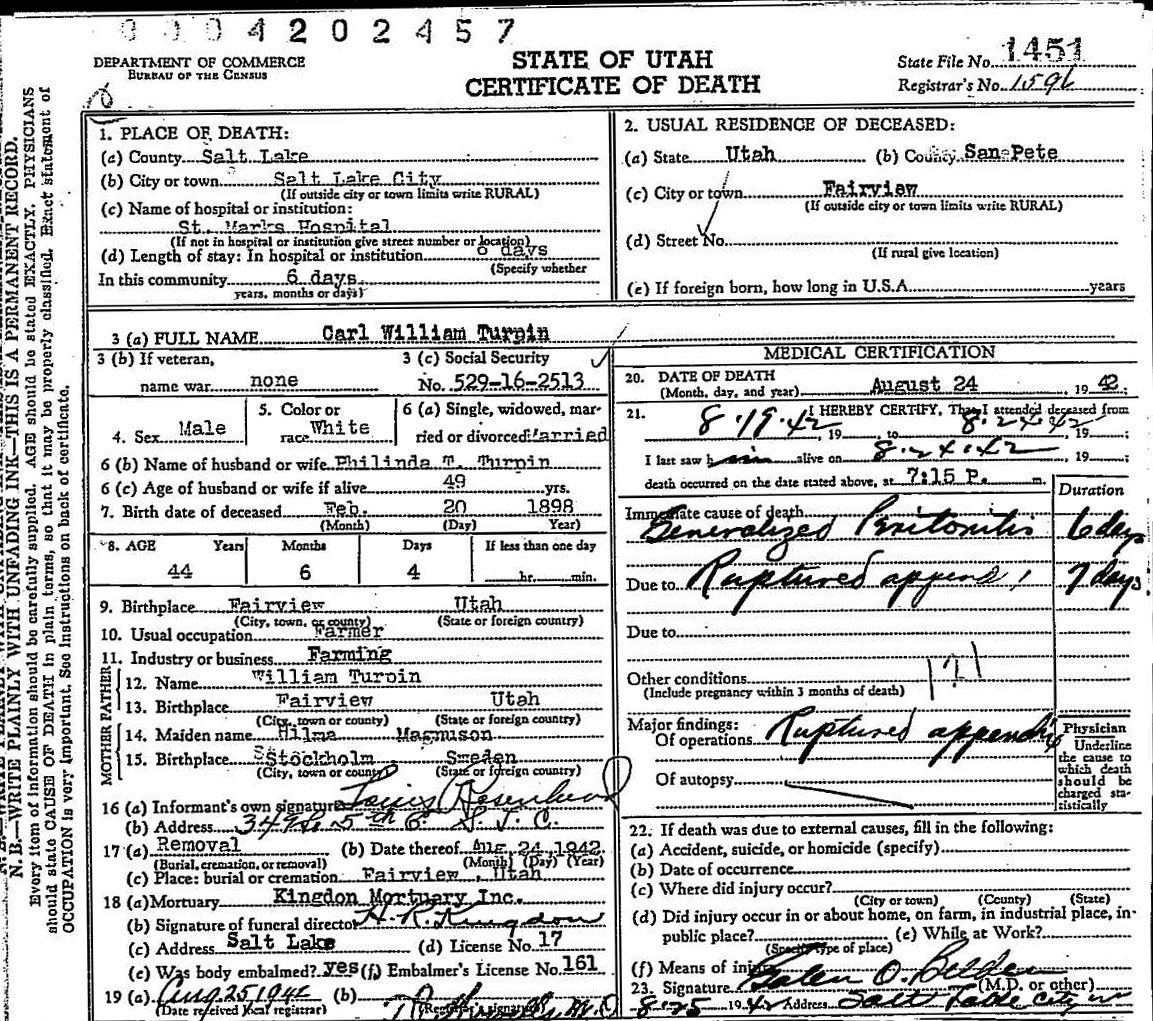 0004202457
DEPARTMENT OF COMMERCE
BUREAU OF THE CENSUS
STATE OF UTAH
CERTIFICATE OF DEATH
State File No. 1451
Registrar's No. 1596
N. B.—WRITE PLAINLY WITH UNFADING INK—THIS IS A PERMANENT RECORD.
Every item of information should be carefully supplied. AGE should be stated EXACTLY. PHYSICIANS
should state CAUSE OF DEATH in plain terms, so that it may be properly classified. Exact statement of
OCCUPATION is very important. See instructions on back of certificate.
1. PLACE OF DEATH:
(a) County Salt Lake
(b) City or town Salt Lake City
(If outside city or town limits write RURAL)
(c) Name of hospital or institution:
St. Marks Hospital
(If not in hospital or institution give street number or location)
(d) Length of stay: In hospital or institution 6 days
(Specify whether
In this community 6 days
years, months or days)
2. USUAL RESIDENCE OF DECEASED:
(a) State Utah (b) County San Pete
(c) City or town Fairview
(If outside city or town limits write RURAL)
(d) Street No.
(If rural give location)
(e) If foreign born, how long in U.S.A. years
3 (a) FULL NAME Carl William Turpin
3 (b) If veteran,
name war none
3 (c) Social Security
No. 529-16-2513
4. Sex Male
5. Color or
race White
6 (a) Single, widowed, mar-
ried or divorced Married
6 (b) Name of husband or wife Philinda T. Turpin
6 (c) Age of husband or wife if alive 49 yrs.
7. Birth date of deceased Feb. 20 1898
(Month) (Day) Year)
8. AGE Years Months Days If less than one day
44 6 4 hr. min.
9. Birthplace Fairview Utah
(City, town, or county) (State or foreign country)
10. Usual occupation Farmer
11. Industry or business Farming
FATHER
12. Name William Turpin
13. Birthplace Fairview Utah
(City, town or county) (State or foreign country)
MOTHER
14. Maiden name Hilma Magnuson
15. Birthplace Stockholm Sweden
(City, town or county) (State or foreign country)
16 (a) Informant's own signature
(b) Address 349 So. 5th E.
17 (a) Removal (b) Date thereof Aug. 24, 1942.
(Burial, cremation, or removal) (Month) (Day) (Year)
(c) Place: burial or cremation Fairview, Utah
18 (a) Mortuary Kingdon Mortuary Inc.
(b) Signature of funeral director H. R. Kingdon
(c) Address Salt Lake (d) License No. 17
(e) Was body embalmed? yes (f) Embalmer's License No. 161
19 (a) Aug 25 1942 (b)
(Date received local registrar) (Registrar's signature)
MEDICAL CERTIFICATION
20. DATE OF DEATH
(Month, day, and year) August 24 1942;
21. I HEREBY CERTIFY, That I attended deceased from
8.19.42, 19 to 8.24.42, 19 ;
I last saw him alive on 8.24.42, 19 ;
death occurred on the date stated above, at 7:15 P. m.
Duration
Immediate cause of death
Generalized Peritonitis 6 days
Due to Ruptured append. 7 days
Due to
Other conditions
(Include pregnancy within 3 months of death)
121
Major findings:
Of operations Ruptured appendix
Of autopsy
Physician
Underline
the cause to
which death
should be
charged sta-
tistically
22. If death was due to external causes, fill in the following:
(a) Accident, suicide, or homicide (specify)
(b) Date of occurrence
(c) Where did injury occur?
(City or town) (County) (State)
(d) Did injury occur in or about home, on farm, in industrial place, in
public place? (e) While at Work?
(Specify type of place)
(f) Means of injury
23. Signature Galen O. Belden (M.D. or other)
8-25 1942 Address Salt Lake City